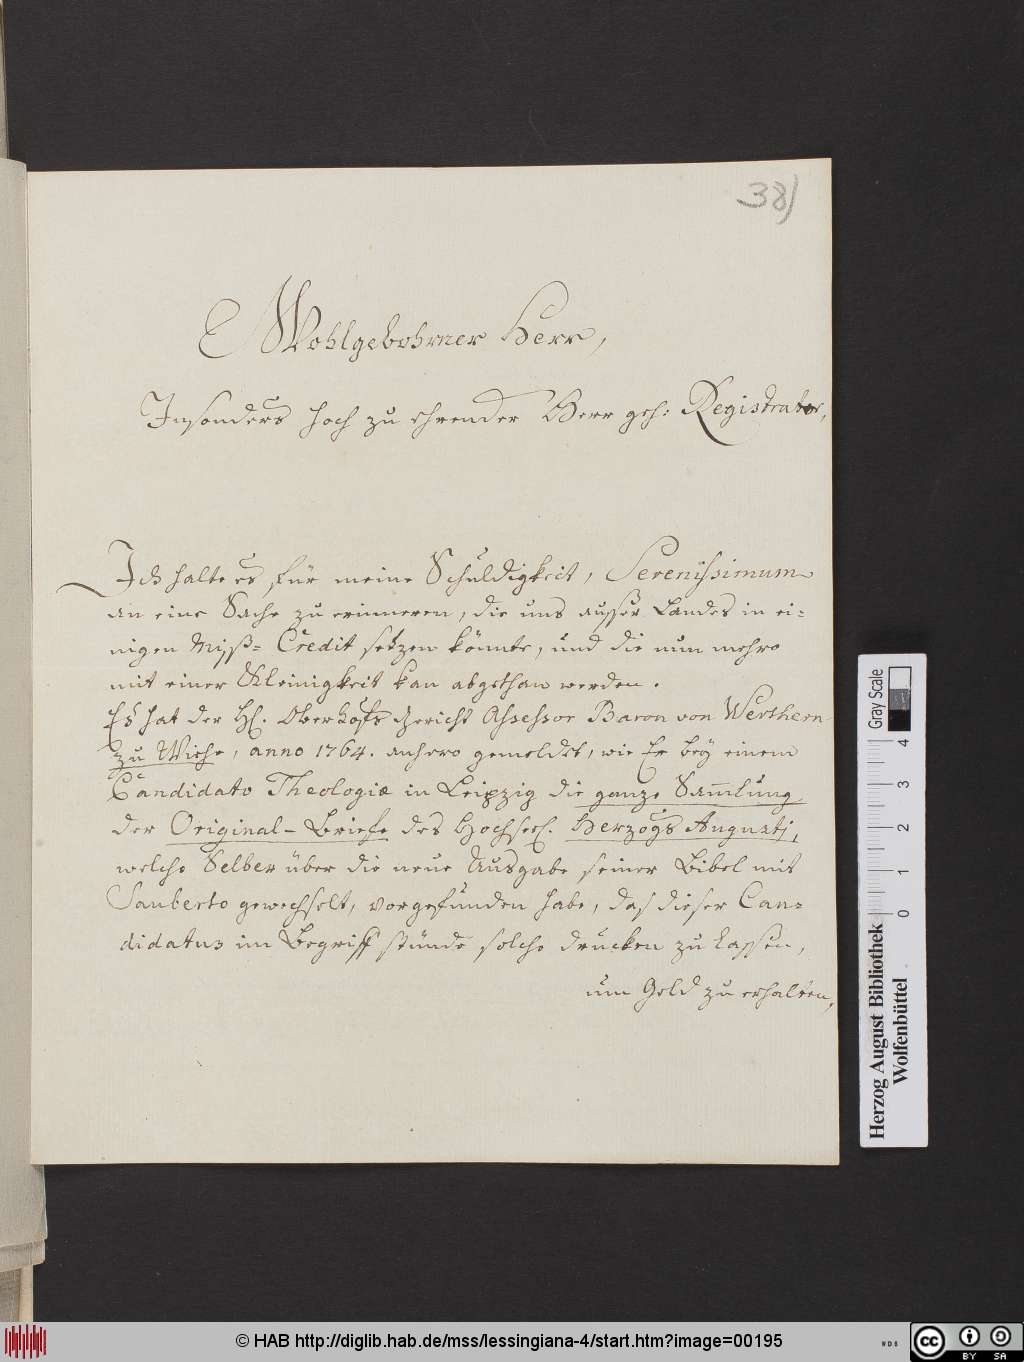 38)
Wohlgebohrner Herr,
Insonders hoch zu ehrender Herr geh: Registrator,
Ich halte es für meine Schuldigkeit, Serenissimum
an eine Sache zu erinneren, die uns ausser Landes in ei-
nigen Miß= Credit setzen könnte, und die nun mehro
mit einer Kleinigkeit kan abgethan werden.
Es hat der H. Ober Hofs Gericht Assessor Baron von Werthern
zu Wiehe, anno 1764. anhero gemeldet, wie Er bey einem
Candidato Theologiæ in Leipzig die ganze Sammlung
der Original-Briefe des Hochseel. Herzogs Augusti,
welche Selber über die neue Ausgabe seiner Bibel mit
Sauberto gewechselt, vorgefunden habe, das dieser Can-
didatus im Begriff stünde solche drucken zu lassen,
um Geld zu erhalten,
Herzog August Bibliothek
Wolfenbüttel
Gray Scale
0 1 2 3 4
© HAB http://diglib.hab.de/mss/lessingiana-4/start.htm?image=00195
WDB
CC BY SA